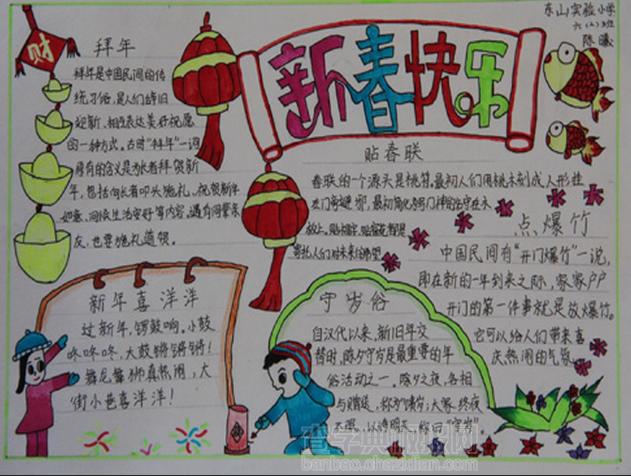 东山实验小学
六(2)班
陈曦
财
新春快乐
拜年
拜年是中国民间的传
统习俗,是人们辞旧
迎新、相互表达美好祝愿
的一种方式。古时"拜年"一词
原有的含义是为长者拜贺新
年,包括向长者叩头施礼、祝贺新年
如意、问候生活安好等内容。遇有同辈亲
友,也要施礼道贺。
贴春联
春联的一个源头是桃符。最初人们用桃木刻成人形挂
寄托人们对未来的希望
点爆竹
中国民间有"开门爆竹"一说,
即在新的一年到来之际,家家户户
开门的第一件事就是放爆竹。
它可以给人们带来喜
庆热闹的气氛。
新年喜洋洋
过新年,锣鼓响。小鼓
咚咚咚,大鼓锵锵锵!
舞龙舞狮真热闹,大
街小巷喜洋洋!
守岁俗
自汉代以来,新旧年交
替时,除夕守岁是最重要的年
俗活动之一,除夕之夜,各相
与赠送,称为"馈岁";大家终夜
不眠,以待天明,称曰"守岁"
查字典板报网
banbao.chazidian.com